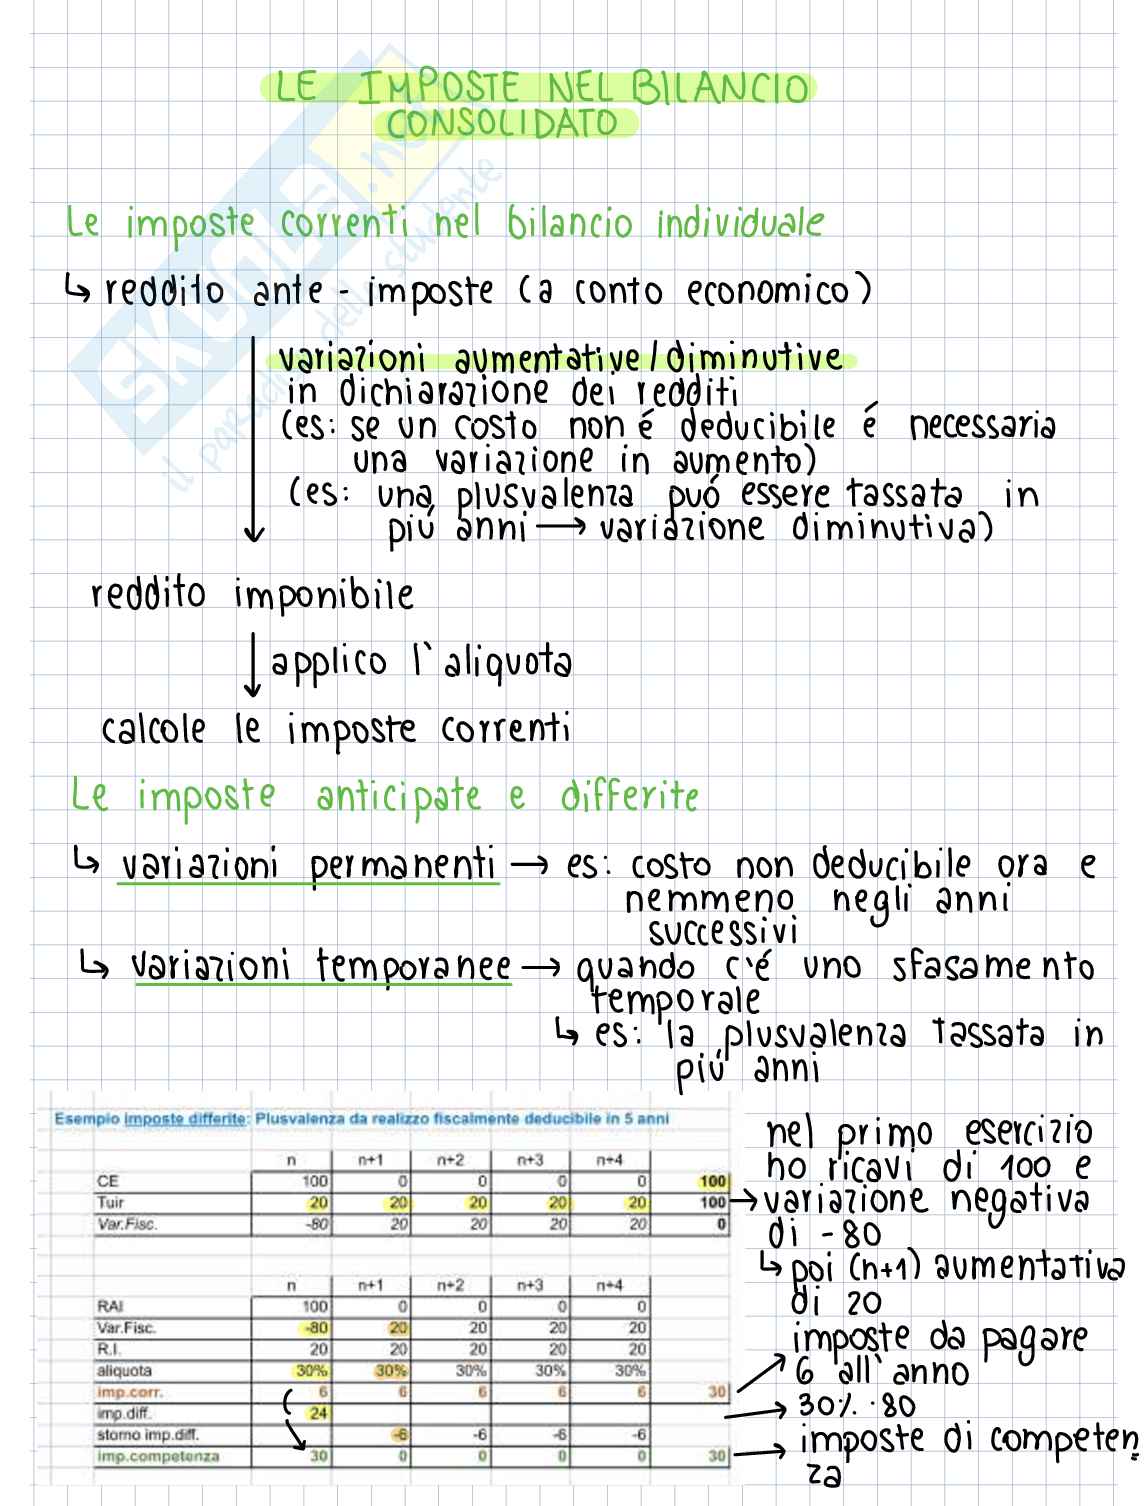 LE IMPOSTE NEL BILANCIO
CONSOLIDATO
Le imposte correnti nel bilancio individuale
↳ reddito ante - imposte (a conto economico)
variazioni aumentative/diminutive
in dichiarazione dei redditi
(es: se un costo non é deducibile é necessaria
una variazione in aumento)
(es: una plusvalenza puó essere tassata in
piú anni → variazione diminutiva)
reddito imponibile
applico l'aliquota
calcole le imposte correnti
Le imposte anticipate e differite
↳ variazioni permanenti → es: costo non deducibile ora e
nemmeno negli anni
successivi
↳ variazioni temporanee → quando c'é uno sfasamento
temporale
↳ es: la plusvalenza tassata in
piú anni
Esempio imposte differite: Plusvalenza da realizzo fiscalmente deducibile in 5 anni
n n+1 n+2 n+3 n+4
CE 100 0 0 0 0 100
Tuir 20 20 20 20 20 100
Var.Fisc. -80 20 20 20 20 0
n n+1 n+2 n+3 n+4
RAI 100 0 0 0 0
Var.Fisc. -80 20 20 20 20
R.I. 20 20 20 20 20
aliquota 30% 30% 30% 30% 30%
imp.corr. 6 6 6 6 6 30
imp.diff. 24
storno imp.diff. -6 -6 -6 -6
imp.competenza 30 0 0 0 0 30
nel primo esercizio
ho ricavi di 100 e
→ variazione negativa
di -80
↳ poi (n+1) aumentativa
di 20
imposte da pagare
6 all'anno
→ 30% · 80
→ imposte di competen
za
SKUOLA.net
il paradiso dello studente